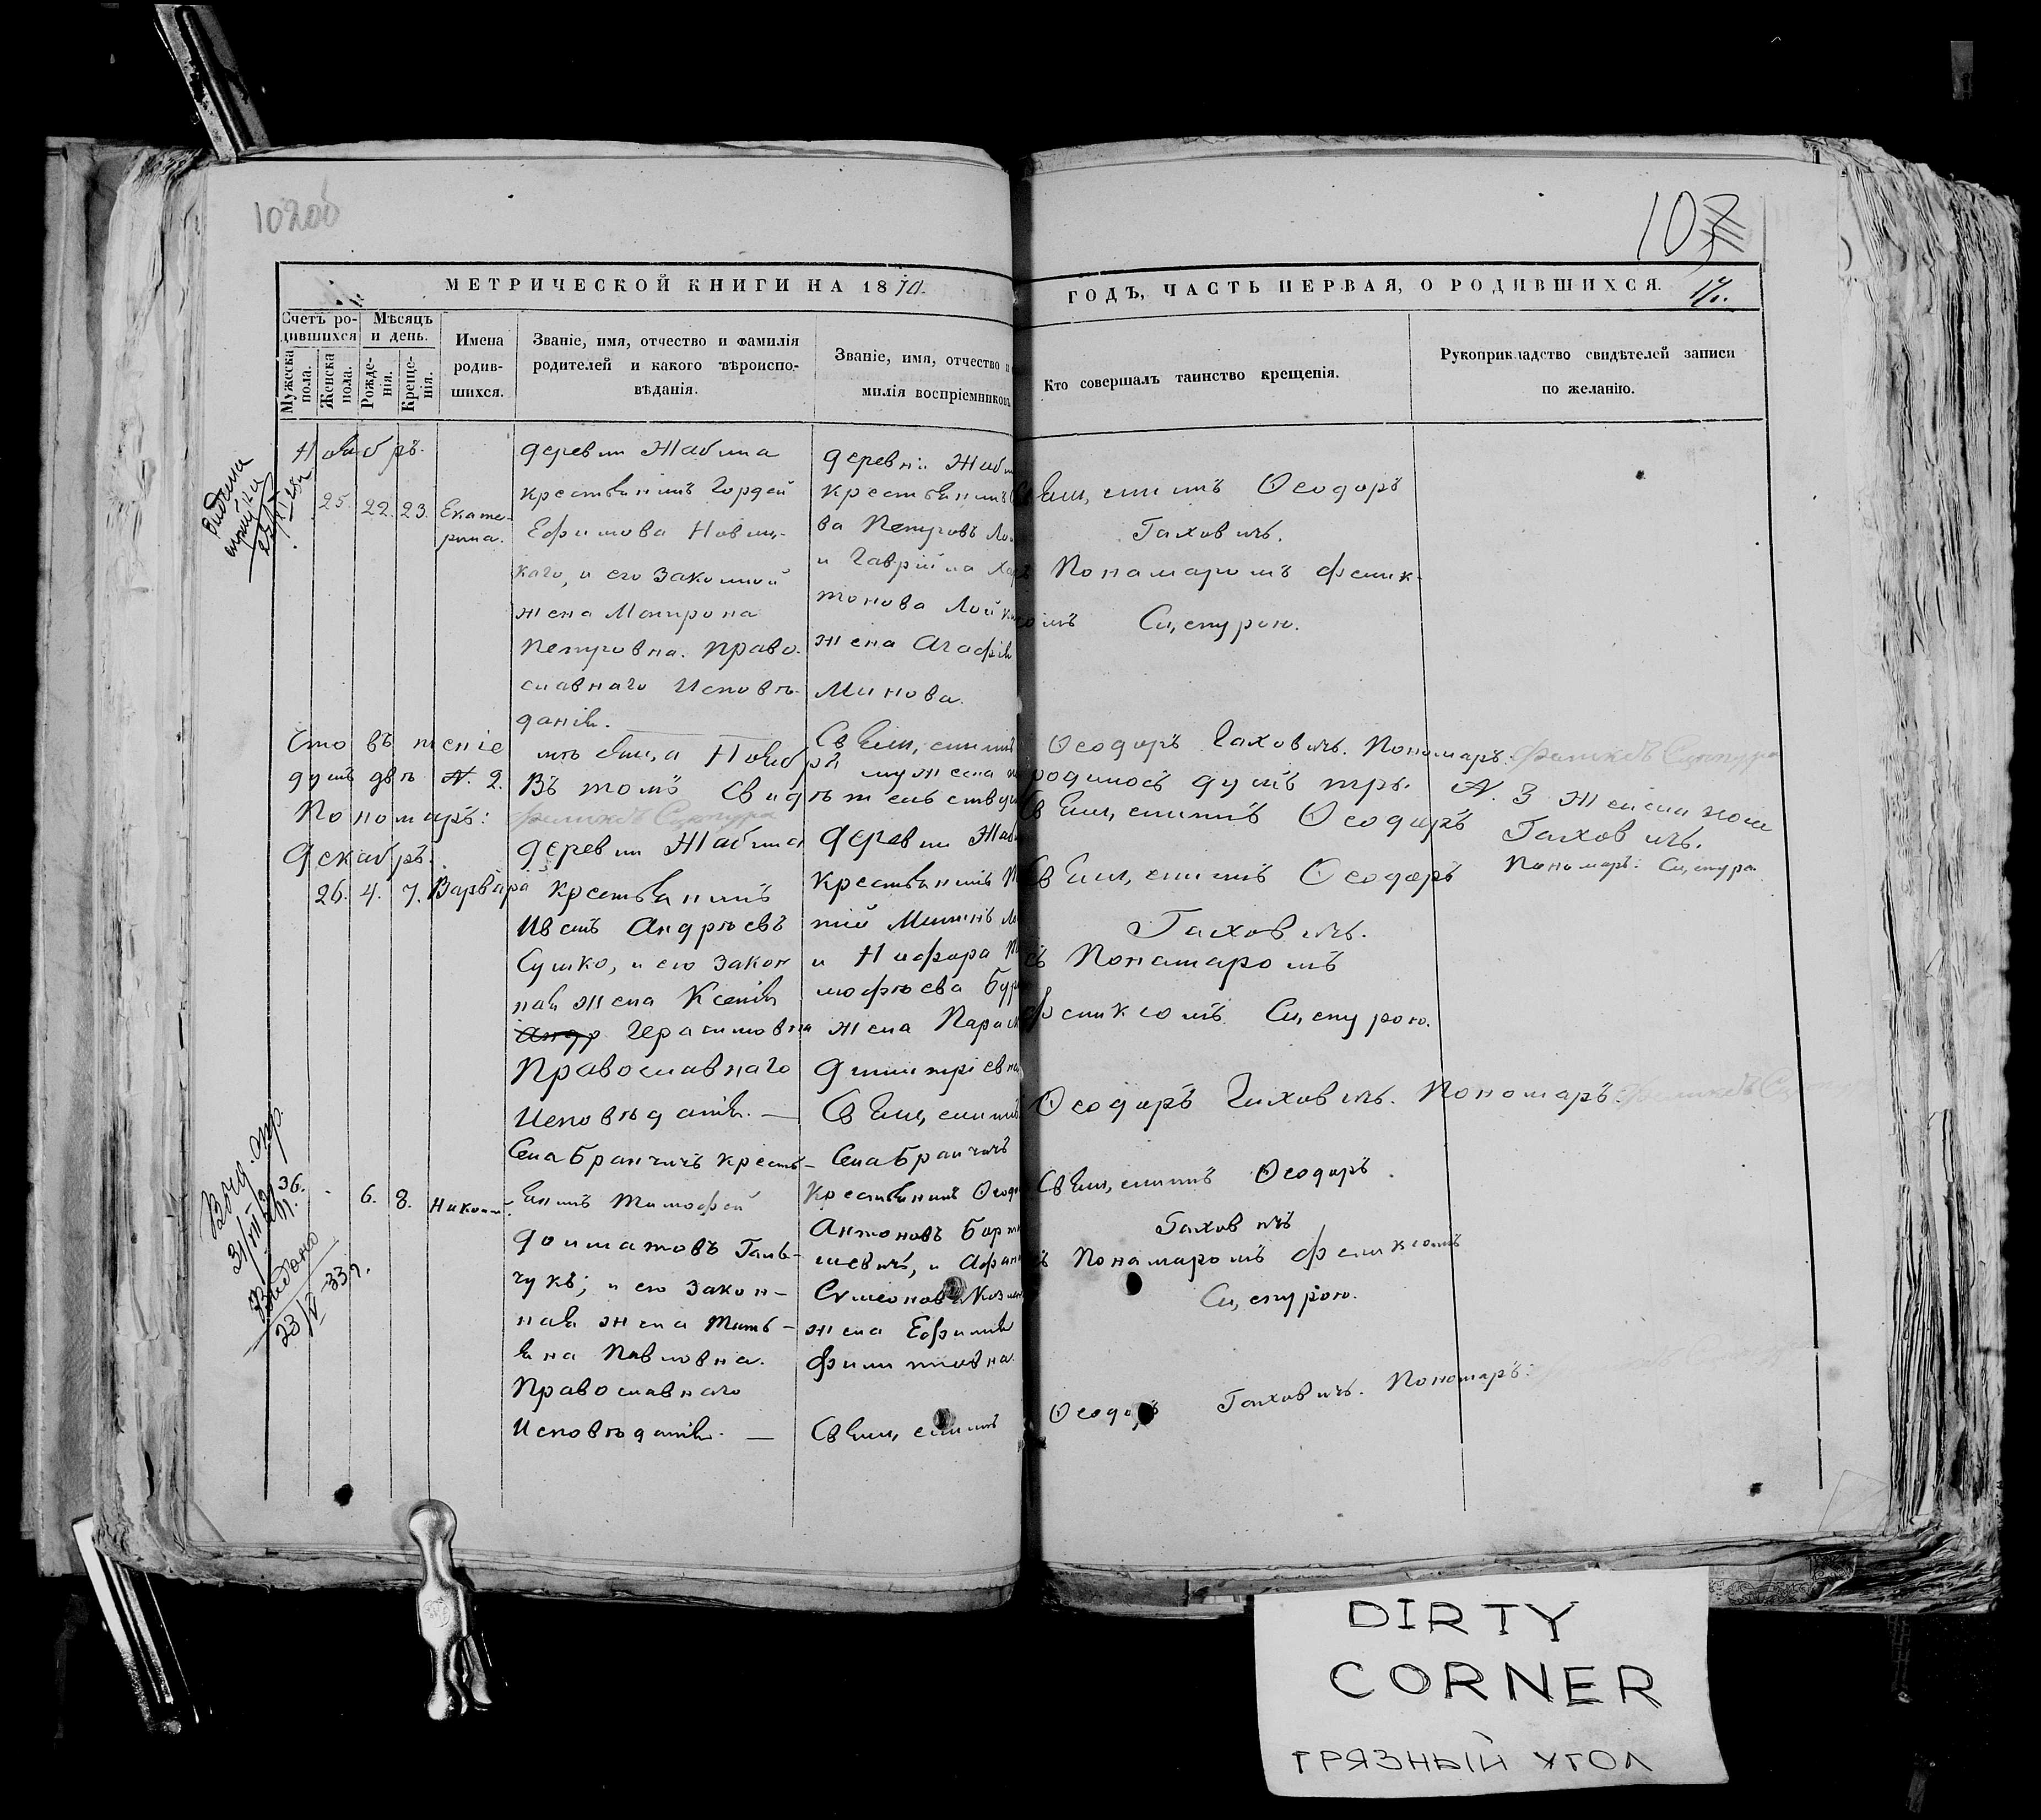 102об
103
МЕТРИЧЕСКОЙ КНИГИ НА 1870.
ГОДЪ, ЧАСТЬ ПЕРВАЯ, О РОДИВШИХСЯ. 17.
Счетъ ро-
дившихся
Мужеска
пола.
Женска
пола.
Мѣсяцъ
и день.
Рожде-
нія.
Креще-
нія.
Имена
родив-
шихся.
Званіе, имя, отчество и фамилія
родителей и какого вѣроиспо-
вѣданія.
Званіе, имя, отчество и
милія воспріемниковъ
Кто совершалъ таинство крещенія.
Рукоприкладство свидѣтелей записи
по желанію.
Ноябрь.
25. 22. 23. Екате-
рина.
деревни Жабина
крестьянинъ Гордей
Ефимова Новиц-
каго, и его законной
жена Матрона
Петровна. Право-
славнаго Исповѣ-
данія.
деревни Жаби
крестьянинъ
ва Петровъ
и Гаврійла Хар
тонова Лойк
жена Агафія
Минова.
Священникъ Ѳеодоръ
Гаховичъ.
Пономаромъ Феник-
сомъ Сцепурою.
Священникъ Ѳеодоръ Гаховичъ. Пономаръ:
Что въ теченіе мѣсяца Ноября мужеска родилось душъ три. N. 3 женска
душъ двѣ N. 2. Въ томъ свидѣтельству Священникъ Ѳеодоръ Гаховичъ.
Пономаръ:
Пономаръ: Сцепура
Декабрь.
26. 4. 7. Варвара
деревни Жабина
крестьянинъ
Иванъ Андрѣевъ
Сушко, и его закон
ная жена Ксенія
Андр Герасимовна
Православнаго
Исповѣданія. —
деревни Жаб
крестьянинъ
тій Мининъ
и Нифора
мофѣева Бур
жена Параск
Димитріевна
Священникъ Ѳеодоръ
Гаховичъ.
съ Пономаромъ
Фениксомъ Сцепурою.
Священникъ Ѳеодоръ Гаховичъ. Пономаръ:
36. 6. 8. Николай.
Села Бранчичъ кресть-
янинъ Тимофей
Долматовъ Галь-
чукъ; и его закон-
ная жена Тать-
яна Павловна.
Православнаго
Исповѣданія. —
Села Бранчичъ
Крестьянинъ Ѳеодо
Антоновъ Барт
шевичъ, и
Сѵмеонов
жена Ефимія
Филиповна.
Священникъ Ѳеодоръ
Гаховичъ
съ Пономаромъ Фениксомъ
Сцепурою.
Священникъ Ѳеодоръ Гаховичъ. Пономаръ:
Видано
23/V 33г.
DIRTY
CORNER
ГРЯЗНЫЙ УГОЛ